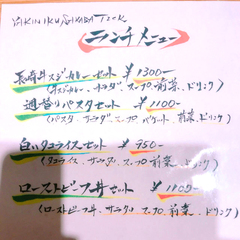 ランチメニュー
長崎牛スジカレーセット ¥1300-
(牛スジカレー、サラダ、スープ、前菜、ドリンク)
週替りパスタセット ¥1100-
(パスタ、サラダ、スープ、バケット、前菜、ドリンク)
白いタコライスセット ¥950-
(タコライス、サラダ、スープ、前菜、ドリンク)
ローストビーフ丼セット ¥1100-
(ローストビーフ丼、サラダ、スープ、前菜、ドリンク)